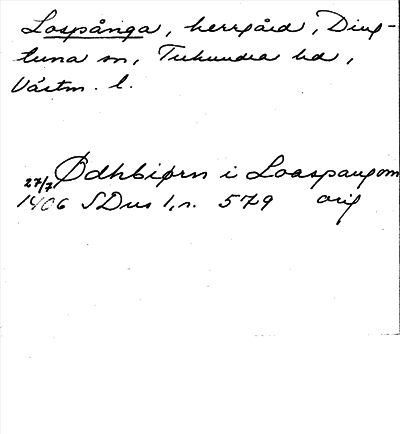 Lospånga, herrgård, Ding-
tuna sn, Tuhundra hd,
Västm. l.
27/7 Ødhbiørn i Loaspangom
1406 SDns 1, n. 579 orig